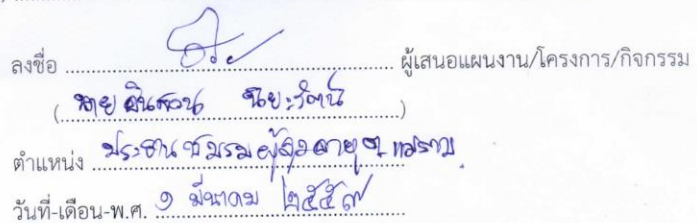 ลงชื่อ ........................ ผู้เสนอแผนงาน/โครงการ/กิจกรรม
(นาย ................)
ตำแหน่ง ประธานชมรมผู้สูงอายุ ต.แม่ราม
วันที่-เดือน-พ.ศ. ๑ มีนาคม ๒๕๕๗